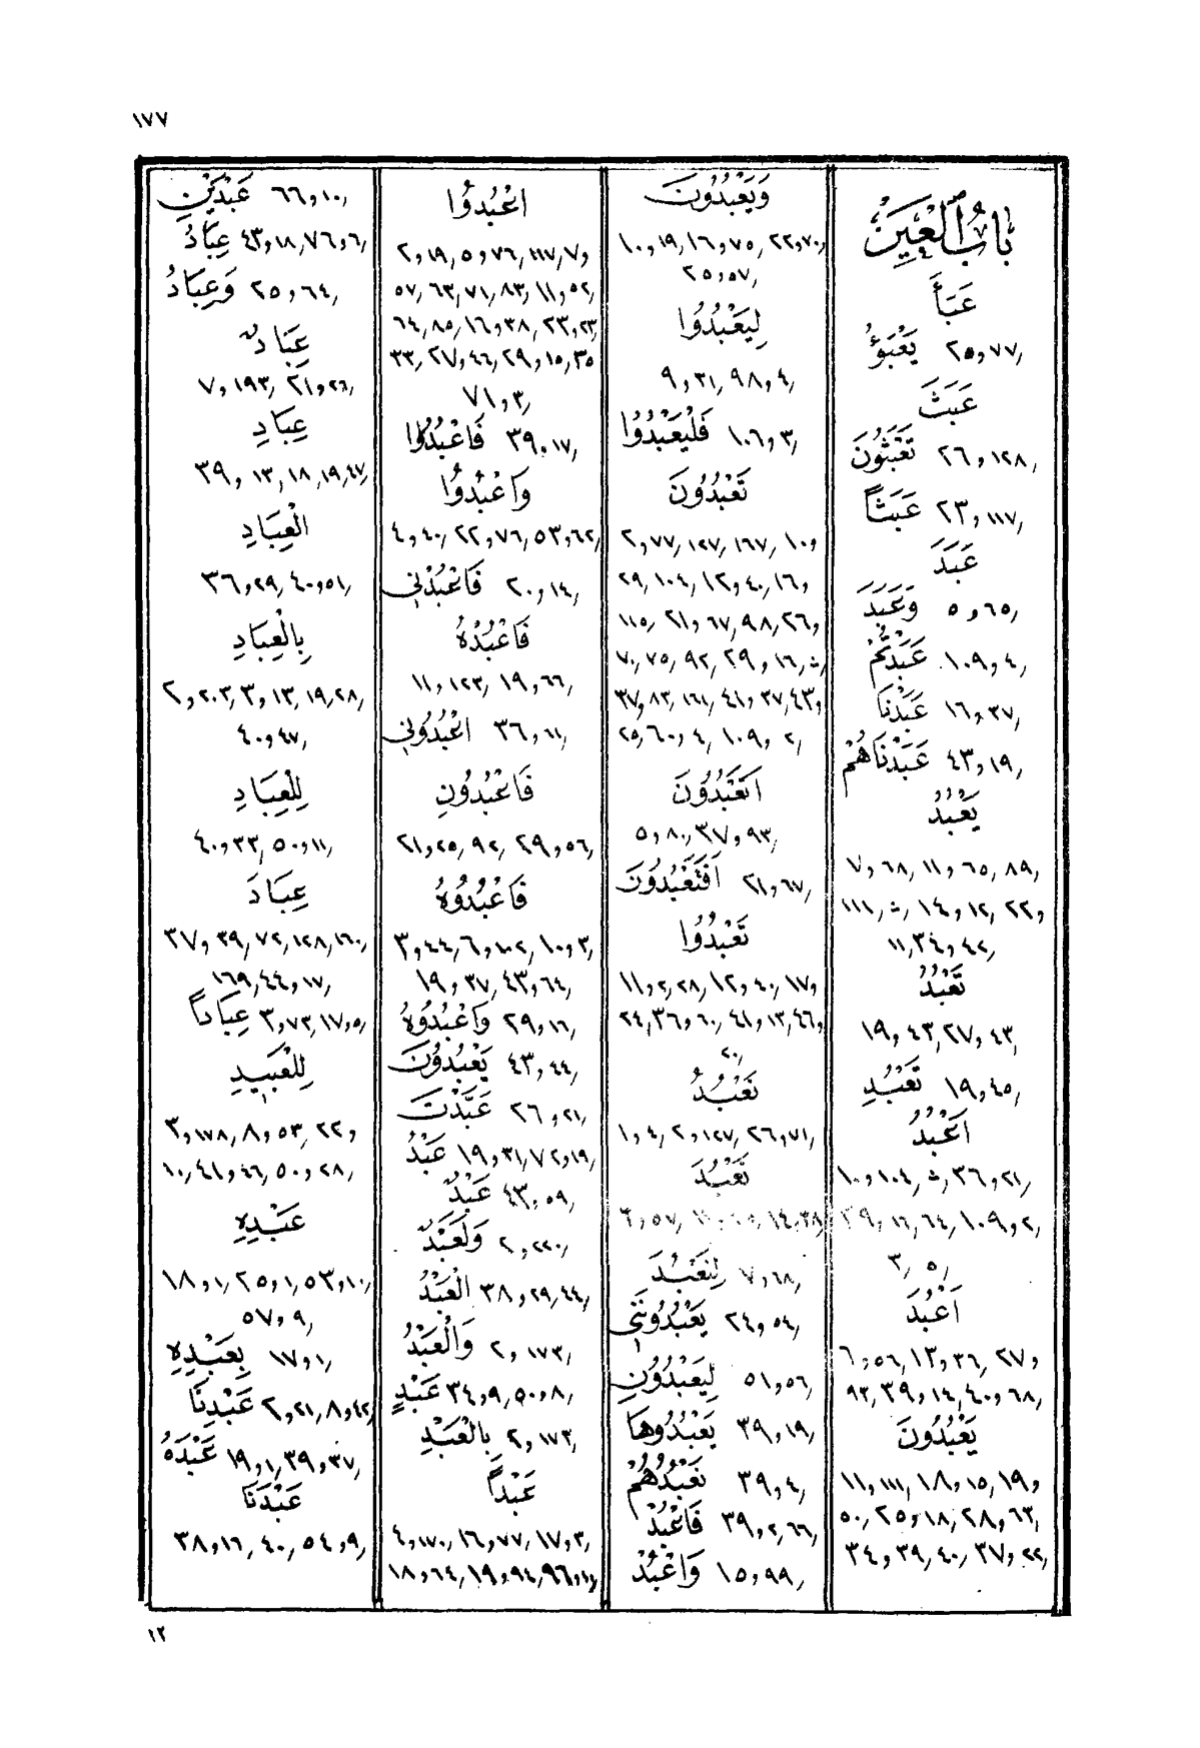 ١٧٧
بَابُ ٱلْعَيْنِ
عَبَأَ
يَعْبَؤُ ٢٥و٧٧,
عَبَثَ
تَعْبَثُونَ ٢٦و١٢٨,
عَبَثاً ٢٣و١١٧,
عَبَدَ
وَعَبَدَ ٥و٦٥,
عَبَدْتُمْ ١٠٩و٤,
عَبَدْنَا ١٦و٣٧,
عَبَدْنَاهُمْ ٤٣و١٩,
يَعْبُدُ
٧و٦٨, ١١و٦٥, ٨٩,
١١١, ث, ١٤و١٢, ٢٢و
١١, ٣٤و٤٢,
تَعْبُدُ
١٩و٤٣, ٢٧و٤٣,
تَعْبُدِ ١٩و٤٥,
أَعْبُدُ
١٠و١٠٤, ث, ٣٦و٢١,
٣٩و١٦, ٦٤, ١٠٩و٢,
٣, ٥,
أَعْبُدَ
٦و٥٦, ١٣و٣٦, ٢٧و
٩٣, ٣٩و١٤, ٤٠و٦٨,
يَعْبُدُونَ
١١و١١١, ١٨و١٥, ١٩و
٥٠, ٢٥و١٨, ٢٨و٦٣,
٣٤و٣٩, ٤٠, ٣٧و٢٢,
وَيَعْبُدُونَ
١٠و١٩, ١٦و٧٥, ٢٢و٧٠,
٢٥و٥٧,
لِيَعْبُدُوا
٩و٣١, ٩٨و٤,
فَلْيَعْبُدُوا ١٠٦و٣,
تَعْبُدُونَ
٢و٧٧, ١٢٧, ١٦٧, ١٠و
٢٩, ١٠٤, ١٢و٤٠, ١٦و
١١٥, ٢١و٦٧, ٩٨, ٢٦و
٧٠, ٧٥, ٩٢, ٢٩و١٦, ث,
٣٧و٨٣, ١٦١, ٤١و٣٧, ٤٣و
٢٥, ٦٠و٤, ١٠٩و٢,
أَتَعْبُدُونَ
٥و٨٠, ٣٧و٩٣,
أَفَتَعْبُدُونَ ٢١و٦٧,
تَعْبُدُوا
١١و٢, ٢٨, ١٢و٤٠, ١٧و
٢٤, ٣٦و٦٠, ٤١و١٣, ٤٦و
٢٠,
نَعْبُدُ
١و٤, ٢و١٢٧, ٢٦و٧١,
نَعْبُدَ
لِنَعْبُدَ ٧و٦٨,
يَعْبُدُونَنِي ٢٤و٥٤,
لِيَعْبُدُونِ ٥١و٥٦,
يَعْبُدُوهَا ٣٩و١٩,
نَعْبُدُهُمْ ٣٩و٤,
فَاعْبُدْ ٣٩و٢, ٦٦,
وَاعْبُدْ ١٥و٩٩,
اعْبُدُوا
٢و١٩, ٥و٧٦, ١١٧, ٧و
٥٧, ٦٣, ٧١, ٨٣, ١١و٥٢,
٦٤, ٨٥, ١٦و٣٨, ٢٣و٢٣,
٣٣, ٢٧و٤٦, ٢٩و١٥, ٣٥
٧١و٣,
فَاعْبُدُوا ٣٩و١٧,
وَاعْبُدُوا
٤و٤٠, ٢٢و٧٦, ٥٣و٦٢,
فَاعْبُدْنِي ٢٠و١٤,
فَاعْبُدْهُ
١١و١٢٣, ١٩و٦٦,
اعْبُدُونِي ٣٦و٦١,
فَاعْبُدُونِ
٢١و٢٥, ٩٢, ٢٩و٥٦,
فَاعْبُدُوهُ
٣و٤٤, ٦و١٠٢, ١٠و٣,
١٩و٣٧, ٤٣و٦٤,
وَاعْبُدُوهُ ٢٩و١٦,
يَعْبُدُونَ ٤٣و٤٤,
عَبَّدْتَ ٢٦و٢١,
عَبْدُ ١٩و٣١, ٧٢و١٩,
عَبْدٌ ٤٣و٥٩,
وَلَعَبْدٌ ٢و٢٢٠,
الْعَبْدُ ٣٨و٢٩, ٤٤,
وَالْعَبْدُ ٢و١٧٣,
عَبْدٍ ٣٤و٩, ٥٠و٨,
بِالْعَبْدِ ٢و١٧٣,
عَبْداً
٤و١٧٠, ١٦و٧٧, ١٧و٣,
١٨و٦٤, ١٩و٩٤, ٩٦و١٠,
عَبْدَيْنِ ٦٦و١٠,
عِبَادُ ٤٣و١٨, ٧٦و٦,
وَعِبَادُ ٢٥و٦٤,
عِبَادٌ
٧و١٩٣, ٢١و٢٦,
عِبَادِ
٣٩و١٣, ١٨, ١٩, ٤٧,
الْعِبَادِ
٣٦و٢٩, ٤٠و٥١,
بِالْعِبَادِ
٢و٢٠٣, ٣و١٣, ١٩, ٢٨,
٤٠و٤٧,
لِلْعِبَادِ
٤٠و٣٣, ٥٠و١١,
عِبَادَ
٣٧و٣٩, ٧٢, ١٢٨, ١٦٠,
١٦٩, ٤٤و١٧,
عِبَاداً ٣و٧٣, ١٧و٥,
لِلْعَبِيدِ
٣و١٧٨, ٨و٥٣, ٢٢و
١٠, ٤١و٤٦, ٥٠و٢٨,
عَبْدِهِ
١٨و١, ٢٥و١, ٥٣و١٠,
٥٧و٩,
بِعَبْدِهِ ١٧و١,
عَبْدِنَا ٢و٢١, ٨و٤٢,
عَبْدَهُ ١٩و١, ٣٩و٣٧,
عَبْدَنَا
٣٨و١٦, ٤٠, ٥٤و٩,
١٢